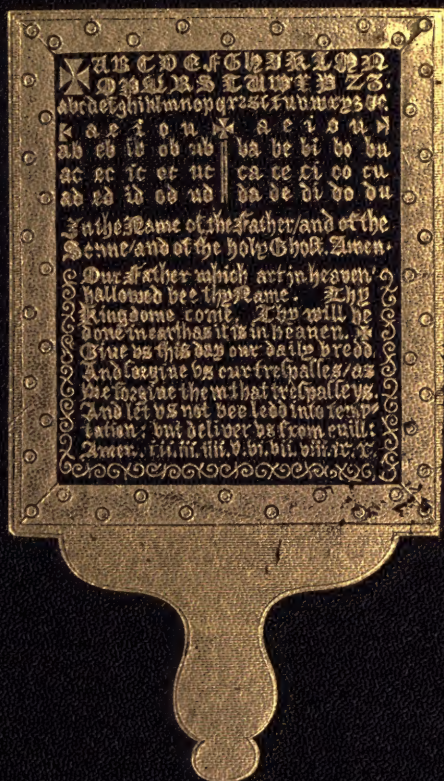 ✠ A B C D E F G H I K L M N
O P Q R S T U W X Y Z 2 3.
abcdefghiklmnopqrzsſtuvwxyz &c.
a e i o u ✠ a e i o u
ab eb ib ob ub ba be bi bo bu
ac ec ic oc uc ca ce ci co cu
ad ed id od ud da de di do du
In the Name of the Father/and of the
Sonne/and of the holy Ghoſt. Amen.
Our Father which art in heaven/
hallowed bee thy Name. Thy
Kingdome come. Thy will be
done in earth as it is in heaven. ✠
Give vs this day our daily bredd
And forgive vs our treſpaſſes/as
we forgive them that treſpaſſe vs.
And let vs not bee ledd into temp-
tation: but deliver vs from euill:
Amen. i.ii.iii.iiii.v.vi.vii.viii.ix.x.